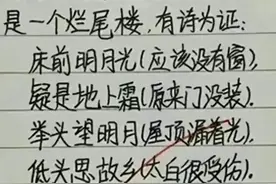 是一个烂尾楼,有诗为证:
床前明月光(应该没有窗),
疑是地上霜(原来门没装).
举头望明月(屋顶漏着光),
低头思故乡(太白很受伤).